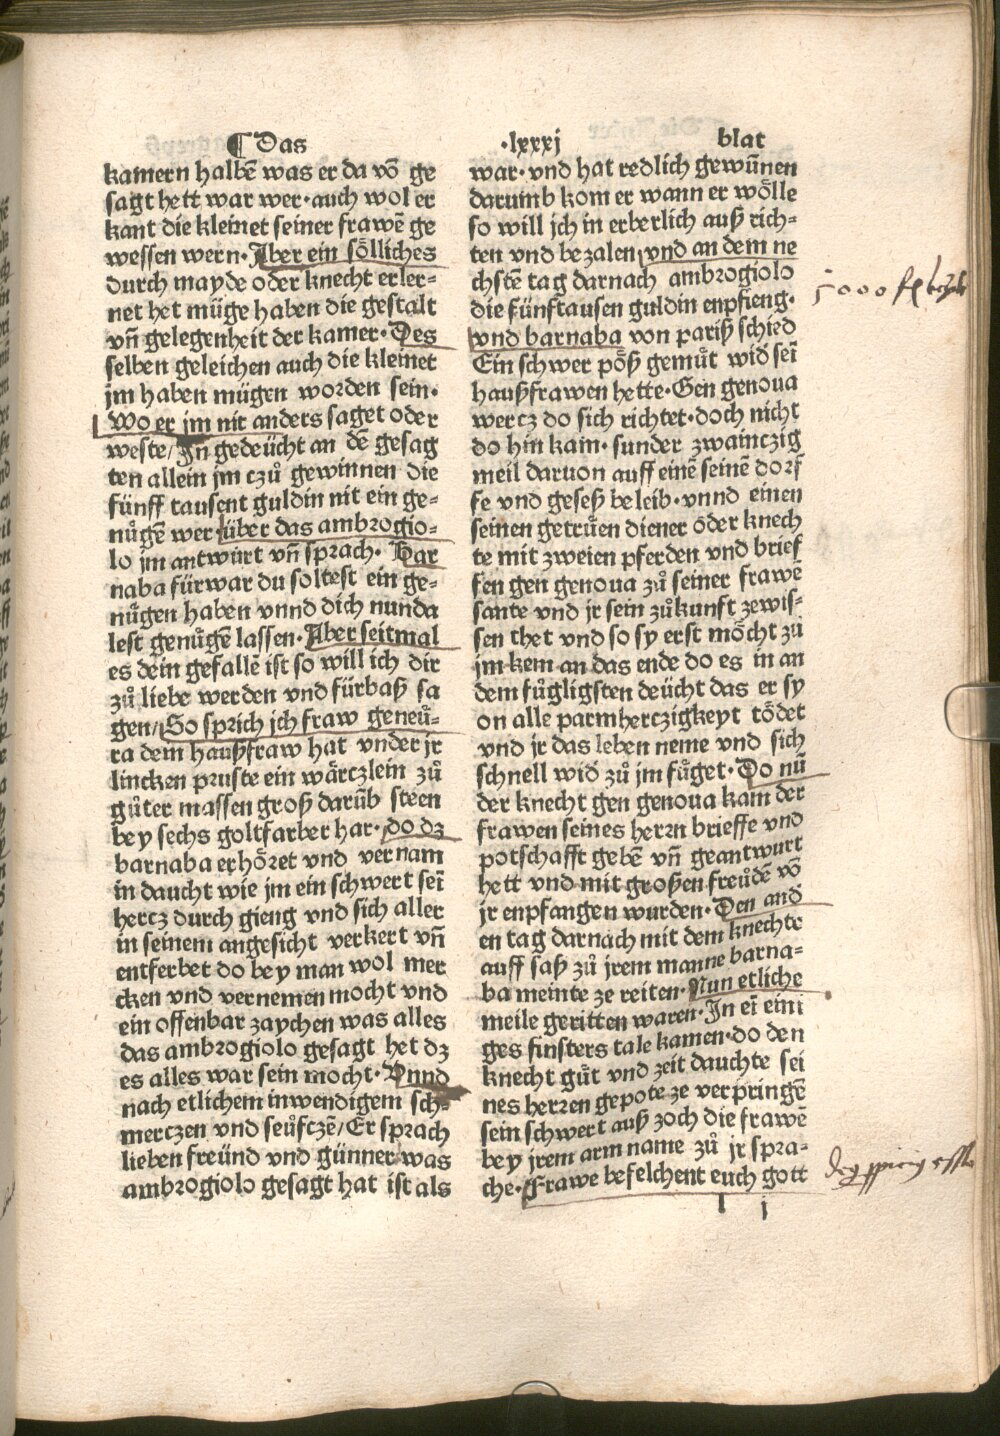 ¶ Das .lxxxj blat
kamern halbē was er da vō ge
sagt hett war wer· auch wol er
kant die kleinet seiner frawē ge
wessen wern· Aber ein sölliches
durch mayde oder knecht erler=
net het müge haben die gestalt
vn̄ gelegenheit der kamer· Des
selben geleichen auch die kleinet
jm haben mügen worden sein·
Wo er jm nit anders saget oder
weste/ In gedeücht an dē gesag
ten allein jm czů gewinnen die
fünff tausent guldin nit ein ge=
nůgē wer· über das ambrogio=
lo jm antwurt vn̄ sprach· Bar
naba fürwar du soltest ein ge=
nügen haben vnnd dich nunda
lest genůgē lassen· Aber seitmal
es dein gefallē ist so will ich dir
zů liebe werden vnd fürbaß sa
gen/ So sprich jch fraw geneü=
ra dem haußfraw hat vnder jr
lincken pruste ein wärczlein zů
gůter massen groß darūb steen
bey sechs goltfarber har· do dz
barnaba erhöret vnd vernam
in daucht wie jm ein schwert seī
hercz durch gieng vnd sich aller
in seinem angesicht verkert vn̄
entferbet do bey man wol mer
cken vnd vernemen mocht vnd
ein offenbar zaychen was alles
das ambrogiolo gesagt het dz
es alles war sein mocht· Vnnd
nach etlichem inwendigem sch=
merczen vnd seüfczē/ Er sprach
lieben freünd vnd günner was
ambrogiolo gesagt hat ist als
war· vnd hat redlich gewūnen
darumb kom er wann er wölle
so will jch in erberlich auß rich=
ten vnd bezalen/ vnd an dem ne
chstē tag darnach ambrogiolo
die fünftausen guldin enpfieng·
vnd barnaba von pariß schied
Ein schwer pöß gemüt wid seī
haußfrawen hette· Gen genoua
wercz do sich richtet· doch nicht
do hin kam· sunder zwainczig
meil daruon auff einē seinē dorf
fe vnd geseß beleib· vnnd einen
seinen getrüen diener oder knech
te mit zweien pferden vnd brief
fen gen genoua zů seiner frawē
sante vnd jr sein zůkunft zewis=
sen thet vnd so sy erst möcht zů
jm kem an das ende do es in an
dem fůgligsten deücht das er sy
on alle parmherczigkeyt tödet
vnd jr das leben neme vnd sich
schnell wid zů jm fůget· Do nū
der knecht gen genoua kam der
frawen seines herrn brieffe vnd
potschafft gebē vn̄ geantwurt
hett vnd mit großen freüdē vō
jr enpfangen wurden· Den and
en tag darnach mit dem knechte
auff saß zů jrem manne barna=
ba meinte ze reiten· Nun etliche
meile geritten waren· In eī eini
ges finsters tale kamen· do den
knecht gůt vnd zeit dauchte sei
nes herren gepote ze verpringē
sein schwert auß zoch die frawē
bey jrem arm name zů jr spra=
che· Frawe befelchent euch gott
5000 fl
l j